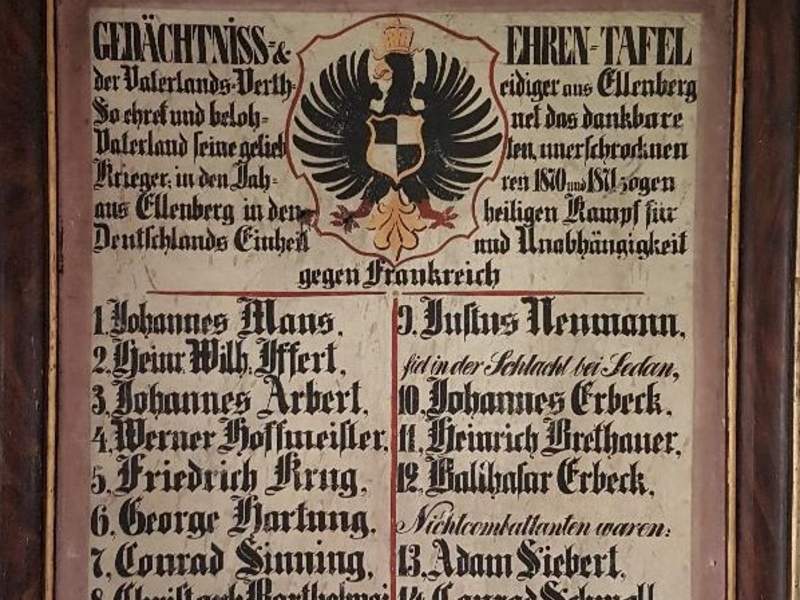 GEDÄCHTNISS=& EHREN=TAFEL
der Vaterlands=Verth= eidiger aus Ellenberg
So ehret und beloh= net das dankbare
Vaterland seine gelieb ten, unerschrocknen
Krieger, in den Jah= ren 1870 und 1871 zogen
aus Ellenberg in den heiligen Kampf für
Deutschlands Einheit und Unabhängigkeit
gegen Frankreich
1. Johannes Mans.
2. Heinr. Wilh. Iffert.
3. Johannes Arbert.
4. Werner Hoffmeister.
5. Friedrich Krug.
6. George Hartung.
7. Conrad Sinning.
8. Christoph Barthelmei
9. Justus Neumann.
fiel in der Schlacht bei Sedan,
10. Johannes Erbeck.
11. Heinrich Brethauer.
12. Balthasar Erbeck.
Nichtcombattanten waren:
13. Adam Siebert.
14. Conrad Schnell